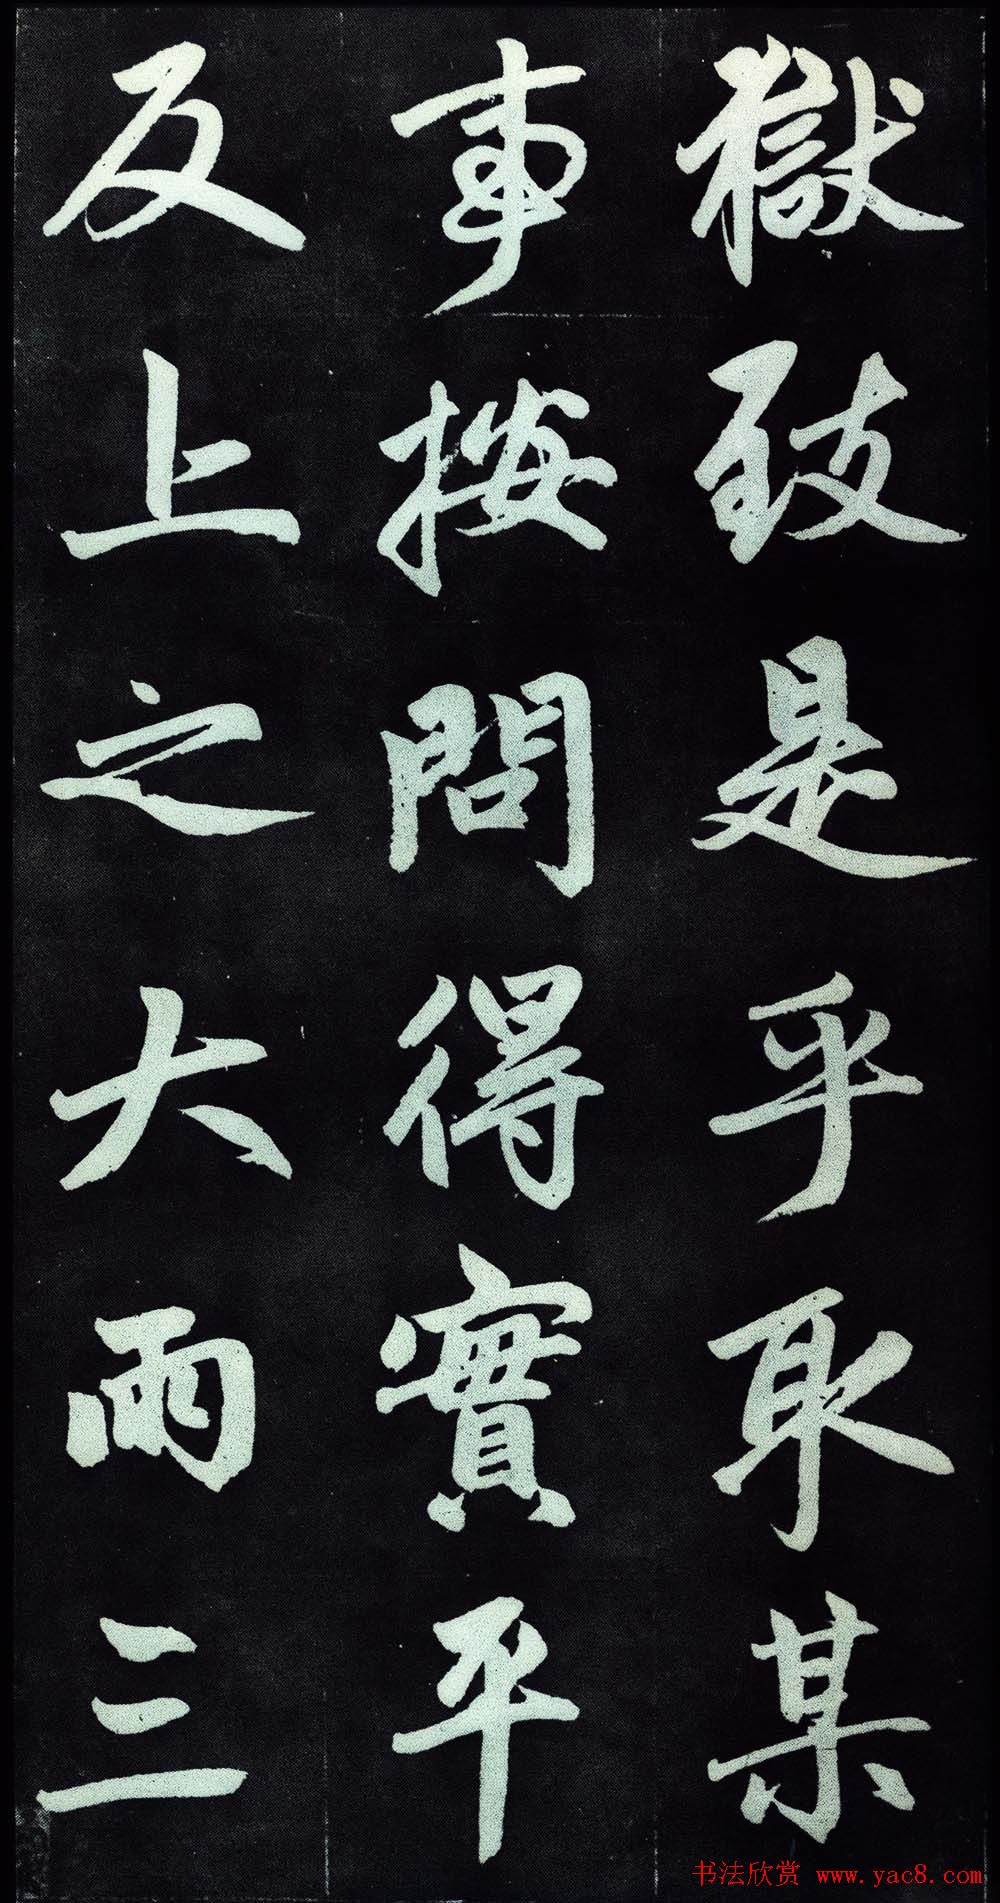 獄致是乎取某
事按問得實平
反上之大雨三
书法欣赏 www.yac8.com